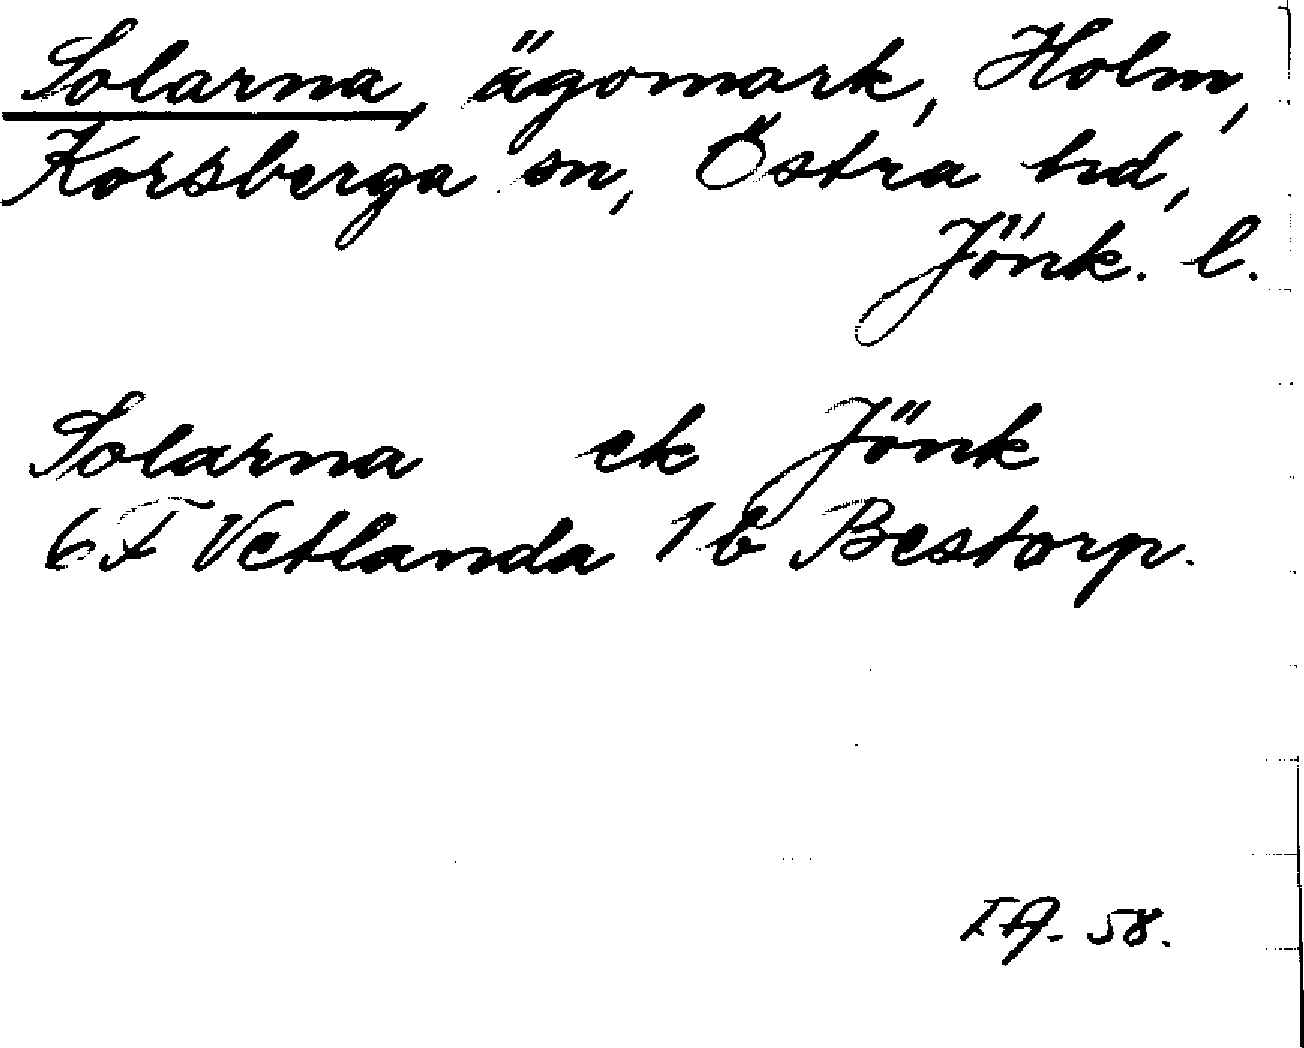 Solarna, ägomark, Holm,
Korsberga sn, Östra hd,
Jönk. l.
Solarna ek Jönk
6F Vetlanda 1b Bestorp.
58.